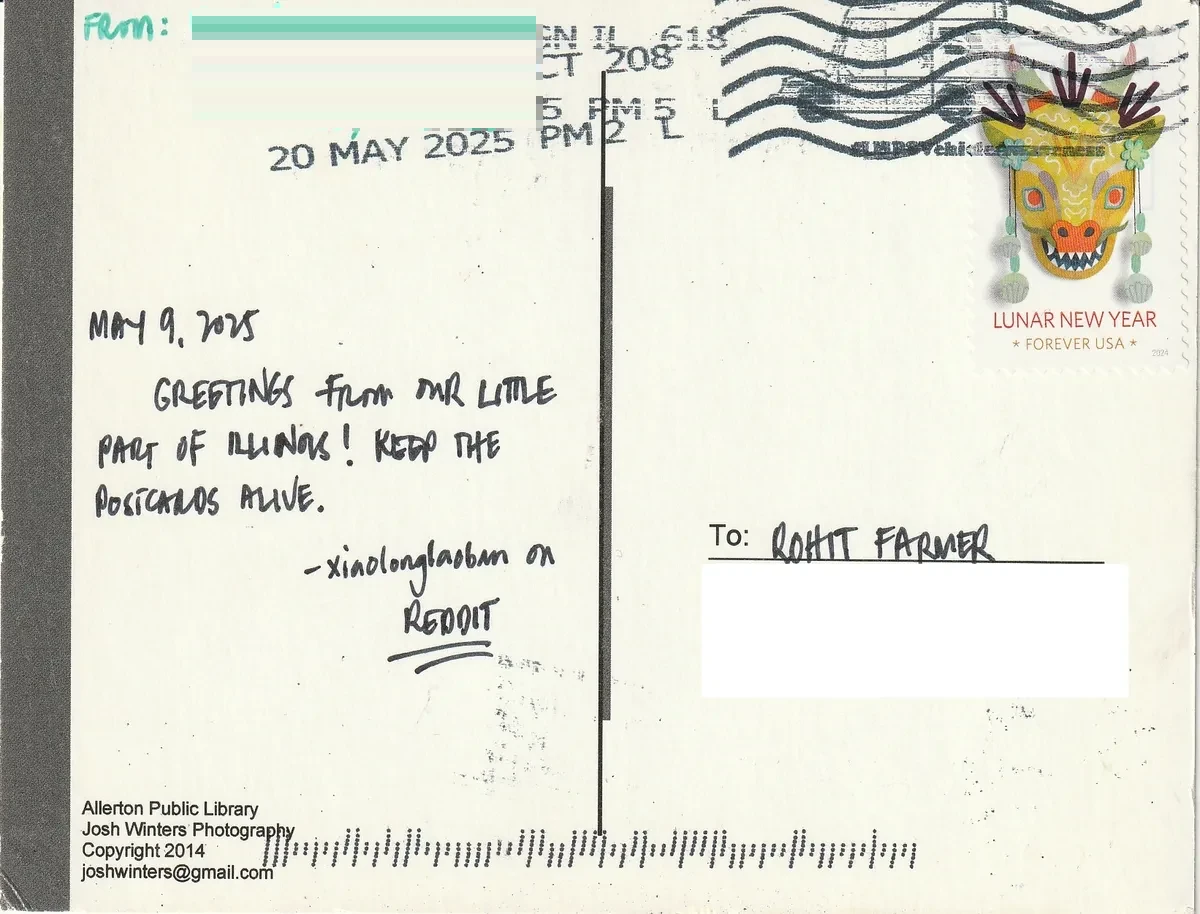 From:
EN IL 618
CT 208
5 PM 5 L
20 MAY 2025 PM 2 L
LUNAR NEW YEAR
* FOREVER USA *
2024
MAY 9, 2025
GREETINGS FROM OUR LITTLE
PART OF ILLINOIS! KEEP THE
POSTCARDS ALIVE.
-xiaolongbaobun on
REDDIT
To: ROHIT FARMER
Allerton Public Library
Josh Winters Photography
Copyright 2014
joshwinters@gmail.com